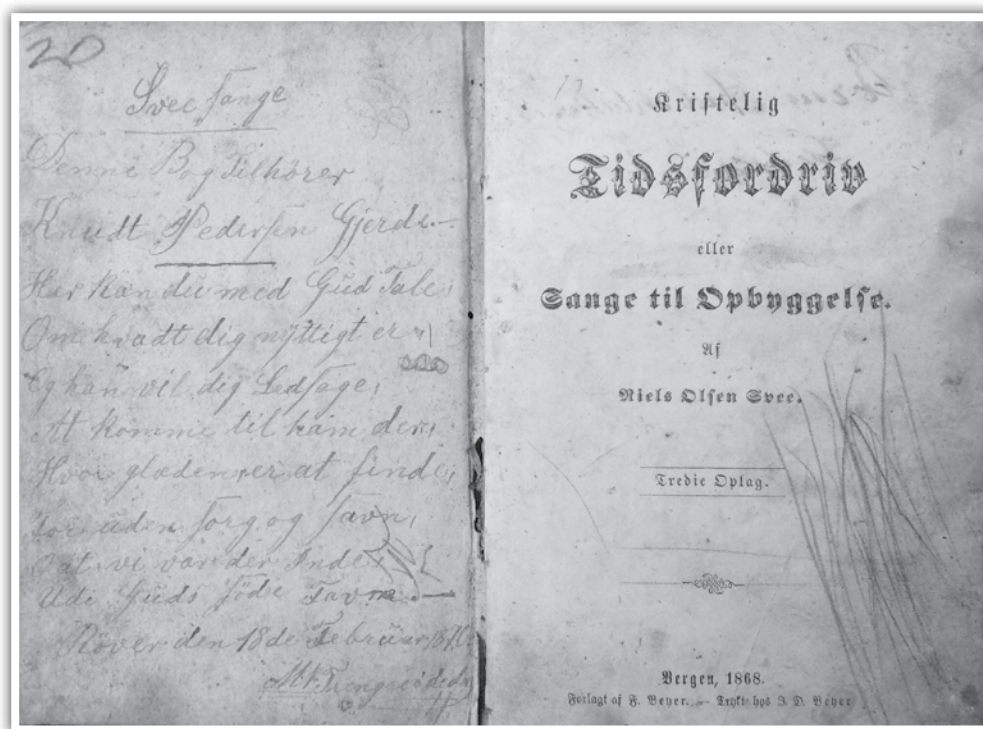 20
Svee sange
Denne Bog Tilhörer
Knudt Pedersen Gjerde
Her kan du med Gud Tale
Om hvadt dig nyttigt er
Og han vil dig Ledsage,
At komme til ham der,
Hvor glæden er at finde,
for uden sorg og savn,
O at vi var der Inde
Udi Guds söde Favn
den 18de Februar
Kristelig
Tidsfordriv
eller
Sange til Opbyggelse.
Af
Niels Olsen Svee.
Tredie Oplag.
Bergen, 1868.
Forlagt af F. Beyer. — Trykt hos J. D. Beyer